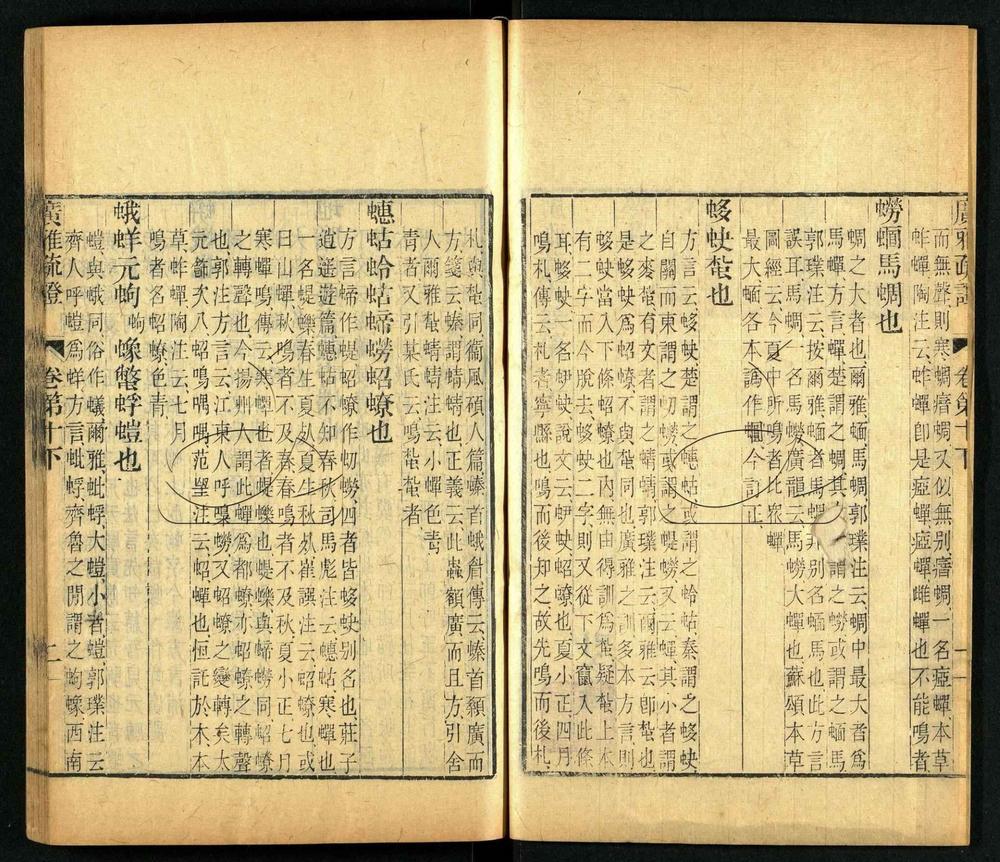 廣雅疏證 卷第十下 二
而無聲則寒蜩瘖蜩又似無別瘖蜩一名瘂蟬本草
蚱蟬陶注云蚱蟬卽是瘂蟬瘂蟬雌蟬也不能鳴者
蟧蝒馬蜩也
蜩之大者也爾雅蝒馬蜩郭璞注云蜩中最大者爲
馬蟬方言蟬楚謂之蜩其大者謂之蟧或謂之蝒馬
郭璞注云按爾雅蝒者馬蜩非别名蝒馬也此方言
誤耳馬蜩一名馬蟧廣韻云馬蟧大蟬也蘇頌本草
圖經云今夏中所鳴者比衆蟬
最大蝒各本譌作 今訂正
蛥蚗蚻也
方言云蛥蚗楚謂之蟪蛄或謂之蛉蛄秦謂之蛥蚗
自關而東謂之虭蟧或謂之蝭蟧又云蟬其小者謂
之麥蚻有文者謂之蜻蜻郭璞注云爾雅云卽蚻也
是蛥蚗爲蛁蟟不與蚻同也廣雅之訓多本方言則
蛥蚗當入下條蛁蟟也内無由得訓爲蚻疑蚻上本
有二字而今脫去蛥蚗二字則又從下文竄入此條
耳蛥蚗一名蛜蚗說文云蛜蚗蛁蟟也夏小正四月
鳴札傳云札者寧縣也鳴而後知之故先鳴而後札
札與蚻同衞風碩人篇螓首蛾眉傳云螓首顙廣而
方箋云螓謂蜻蜻也正義云此蟲額廣而且方引舍
人爾雅蚻蜻注云小蟬色青
青者又引某氏云鳴蚻蚻者
蟪蛄蛉蛄蝭蟧蛁蟟也
方言蝭作蝭蛁蟟作虭蟧四者皆蛥蚗别名也莊子
逍遙遊篇蟪蛄不知春秋司馬彪注云蟪蛄寒蟬也
一名蝭蟧春生夏死夏生秋死崔譔注云蛁蟟也或
曰山蟬秋鳴者不及春春鳴者不及秋夏小正七月
寒蟬鳴傳云寒蟬也者蝭蠑也蝭蠑與蝭蟧同蛁蟟
之轉聲也今揚州人謂此蟬爲都蟟亦蛁蟟之轉聲
也郭注方言云江東人呼 蟧又蛁蟟之變轉矣太
元飾次八蛁鳴喁喁范望注云蛁蟬也恒託於木本
草蚱蟬陶注云七月
鳴者名蛁蟟色青
蛾蛘元蚼蚼蟓蟞蜉螘也
螘與蛾同俗作蟻爾雅蚍蜉大螘小者螘郭璞注云
齊人呼螘爲蛘方言蚍蜉齊魯之閒謂之蚼蟓西南
廣雅疏證 卷第十下 二